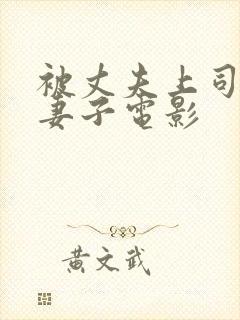 被丈夫上司
妻子电影
黄文武